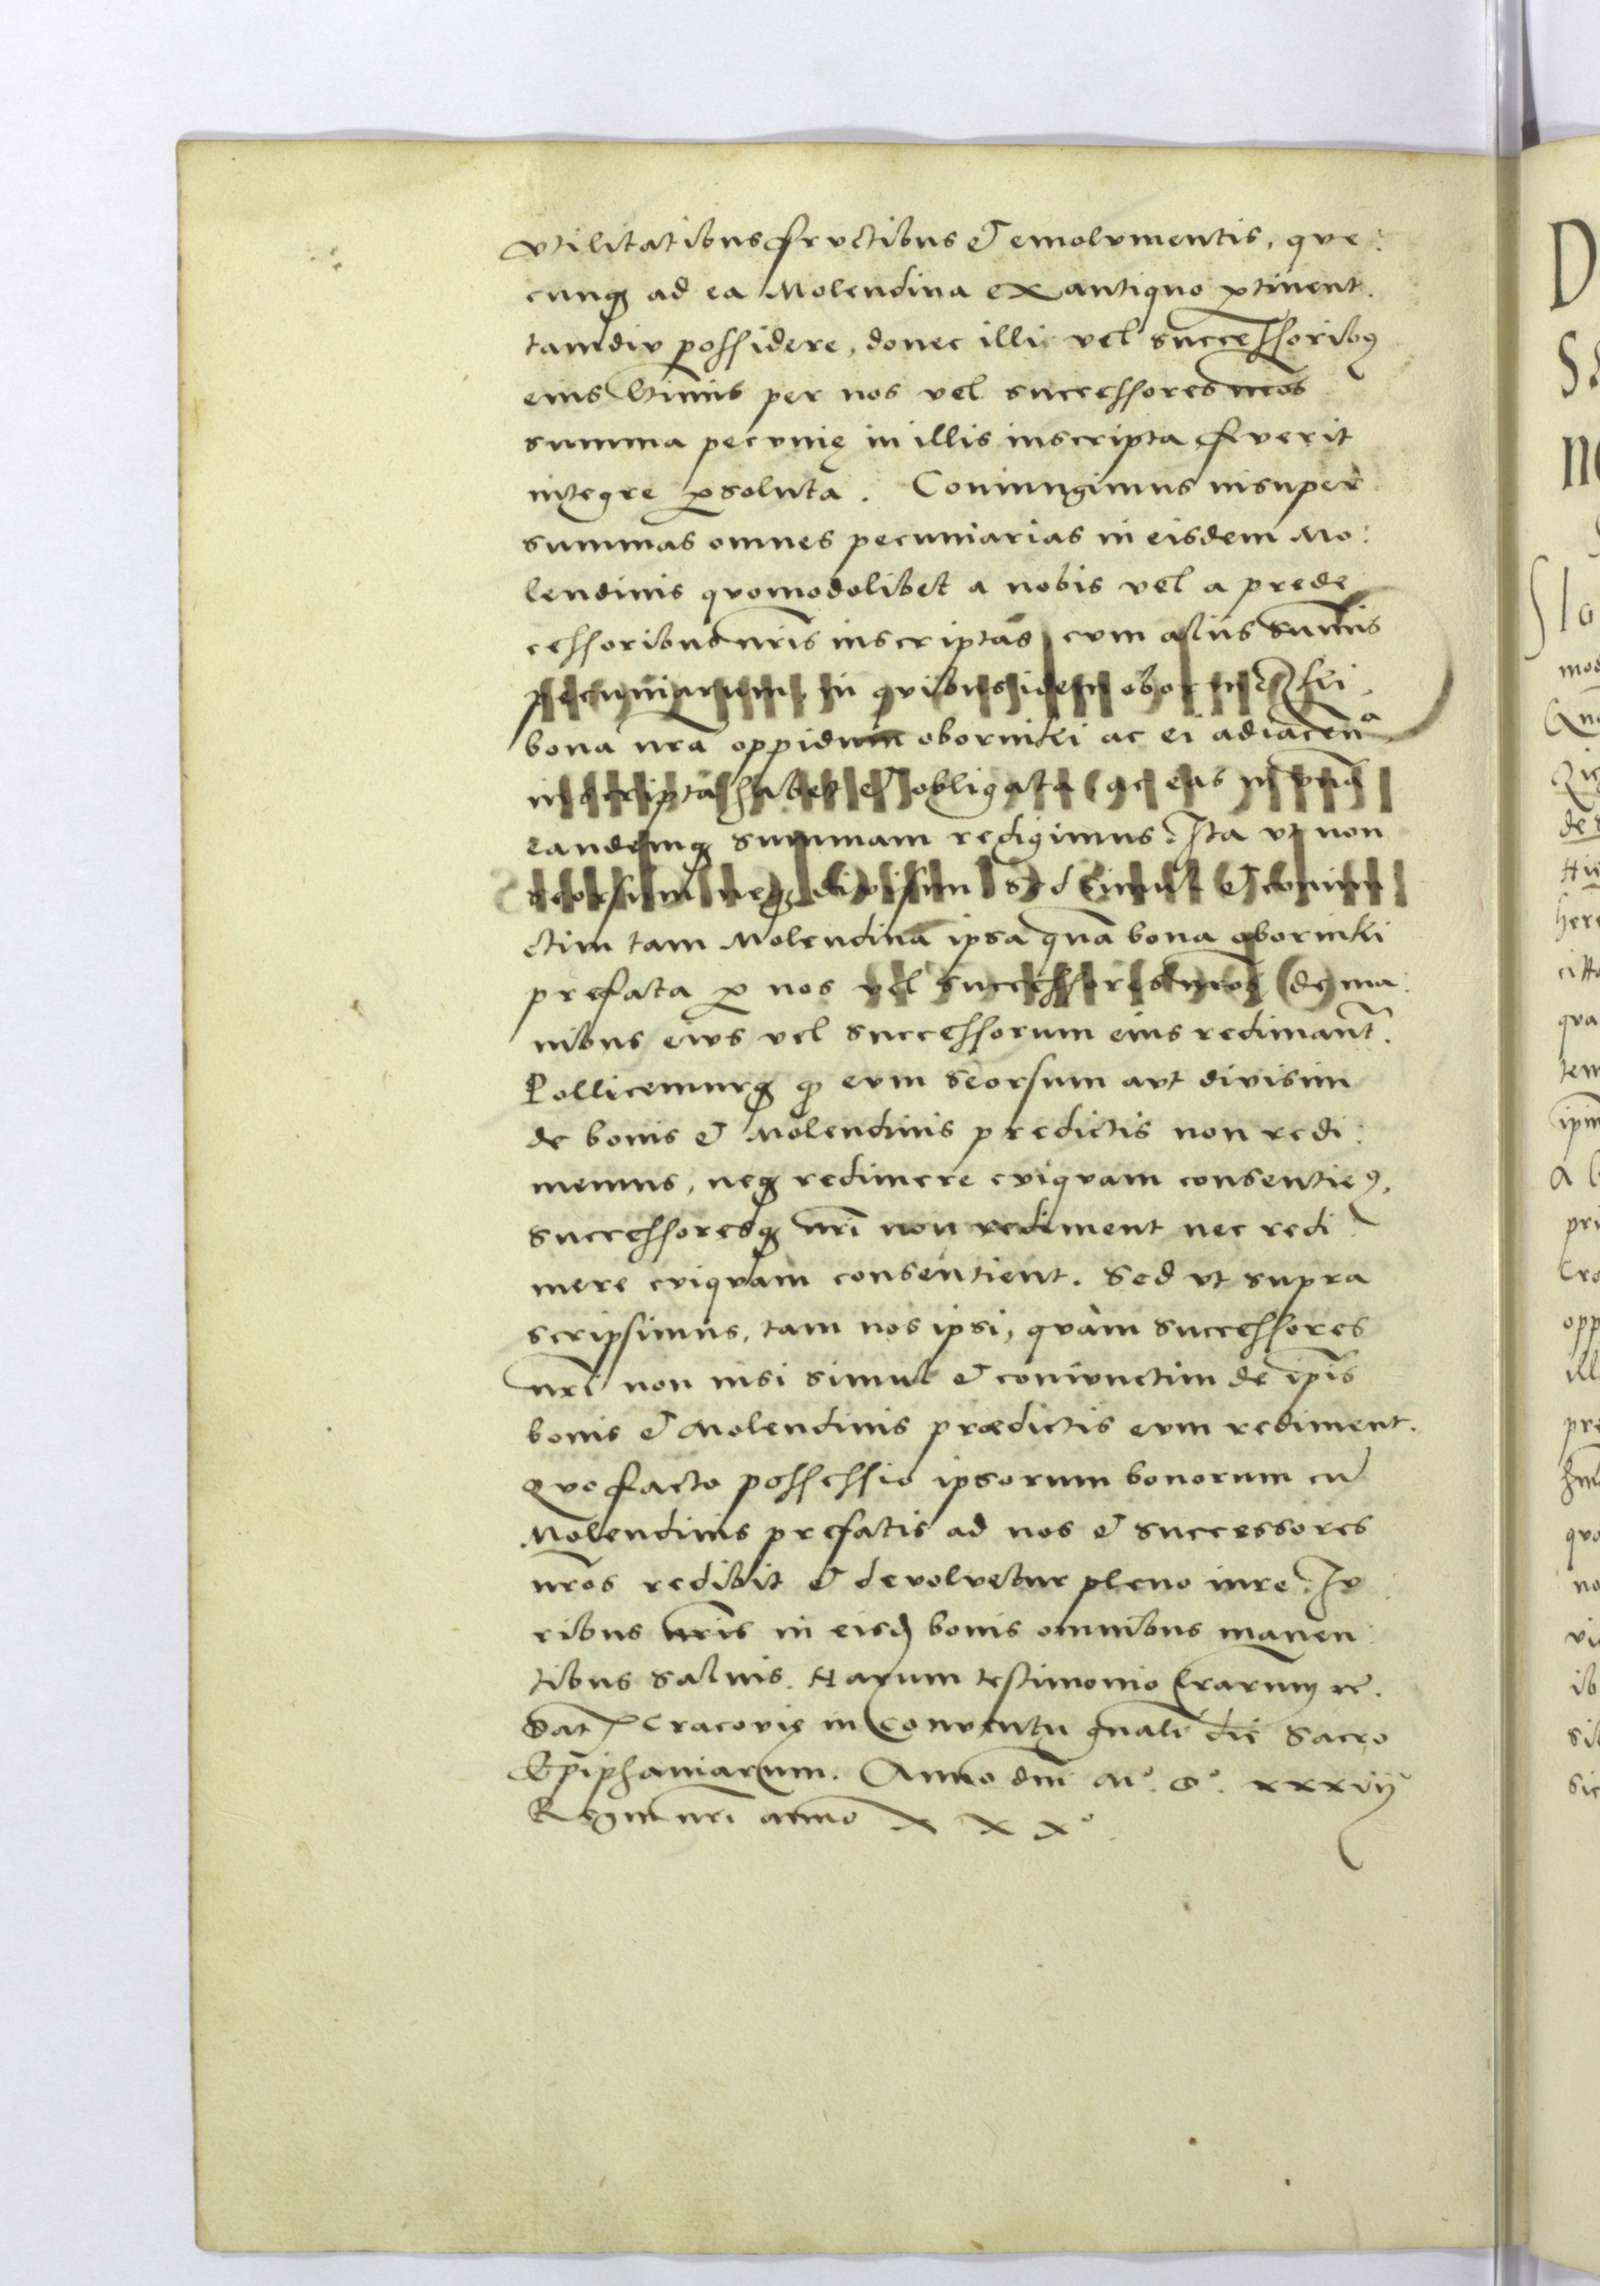 vtilitatibus fructibus & emolumentis, que:
cunq₃ ad ea Molendina ex antiquo ꝑtinent.
tamdiu possidere, donec illi vel successoribꝯ
eius ltimis per nos vel successores nr̄os
summa pecunię in illis inscripta fuerit
integre ꝑsoluta. Coniungimus insuper
summas omnes pecuniarias in eisdem Mo:
lendinis quomodolibet a nobis vel a prede
cessoribus nr̄is inscriptas, cum aliis sum̄is
pecuniarum, in quibus idem
bona nr̄a oppidum oborniki ac ei adiacen̄a
inscripta habet & obligata, ac eas in vnā
eandemq₃ summam redigimus. Ita vt non
seorsum neq₃ divisim sed simul & coniun
ctim tam Molendina ipsa quā bona oborniki
prefata ꝑ nos vel successores nr̄os de ma:
nibus eius vel successorum eius redimant̄.
Pollicemurq₃ ꝙ eum seorsum aut divisim
de bonis & Molendinis predictis non redi:
memus, neq₃ redimere cuiquam consentieꝯ,
successoresq₃ nr̄i non rediment nec redi
mere cuiquam consentient. Sed vt supra
scripsimus, tam nos ipsi, quàm successores
nr̄i non nisi simul & coniunctim de ip̄is
bonis & Molendinis prædictis eum rediment.
Quo facto possessio ipsorum bonorum cū
Molendinis prefatis ad nos & successores
nr̄os redibit & devolvetur pleno iure. Iu
ribus nr̄is in eisd̄ bonis omnibus manen:
tibus salvis. Harum testimonio lr̄arum rē.
Dat̄ Cracovię in Conventu gn̄ali die Sacro
Epiphaniarum. Anno dn̄i M°. D°. xxxvij°
Regni nr̄i anno x x x°.
D